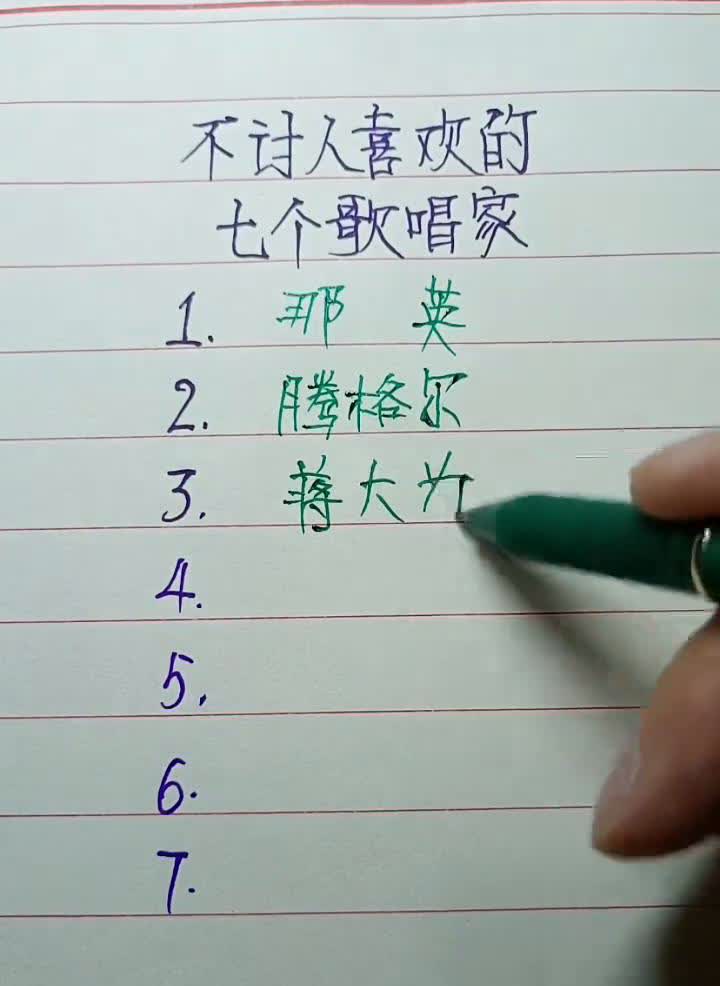 不讨人喜欢的
七个歌唱家
1. 那 英
2. 腾格尔
3. 蒋大为
4.
5.
6.
7.